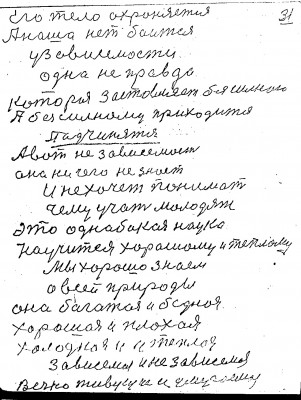 31
Его тело охроняется
А наша нет боится
узависемости
одна не правда
Которая заставляет бясилного
А безсилному приходится
падчинятся
А вот не зависемост
она ни чего не знает
И не хочет понимат
чему учат молодяж
Это однабокая наука
Научится харашому и теплому
Мы хорошо знаем
о всей природы
она багатая и бедная
харошая и плохая
холодная и и теплая
Зависемя и не зависемя
Вечно живучи и